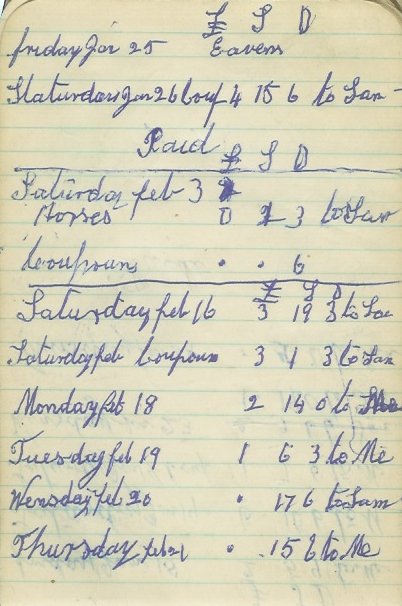 £ S D
friday Jan 25 Eavens
Staturday Jan 26 Coup 4 15 6 to Sam
Paid £ S D
Saturday feb 3
Horses 0 2 3 to Sam
Coupouns . . 6
£ S D
Saturday feb 16 3 19 3 to Sam
Saturday feb Coupoun 3 1 3 to Sam
Monday feb 18 2 14 0 to
Tuesday feb 19 1 6 3 to Me
Wensday feb 20 . 17 6 to Sam
Thursday feb 21 . 15 6 to Me